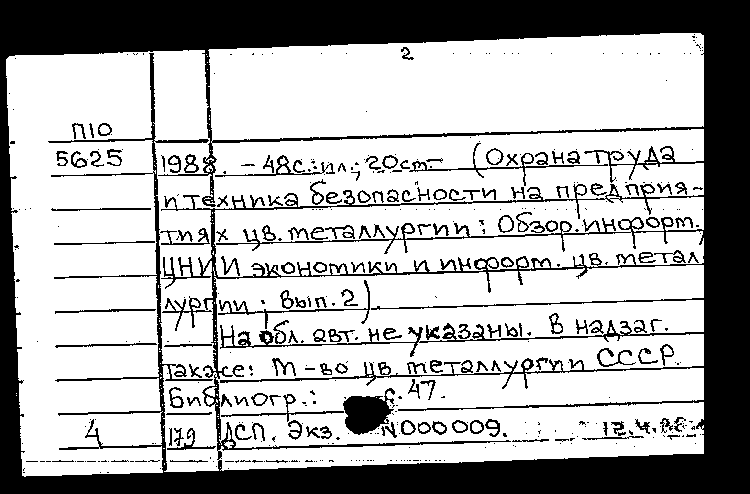 2
П10
5625 1988. - 48с.:ил.; 20см.- (Охрана труда
и техника безопасности на предприя-
тиях цв. металлургии: Обзор. информ.,
ЦНИИ экономики и информ. цв. метал
лургии; Вып. 2).
На обл. авт. не указаны. В надзаг.
также: М-во цв. металлургии СССР.
Библиогр.: с. 47.
4 179 ДСП. Экз. N000009.